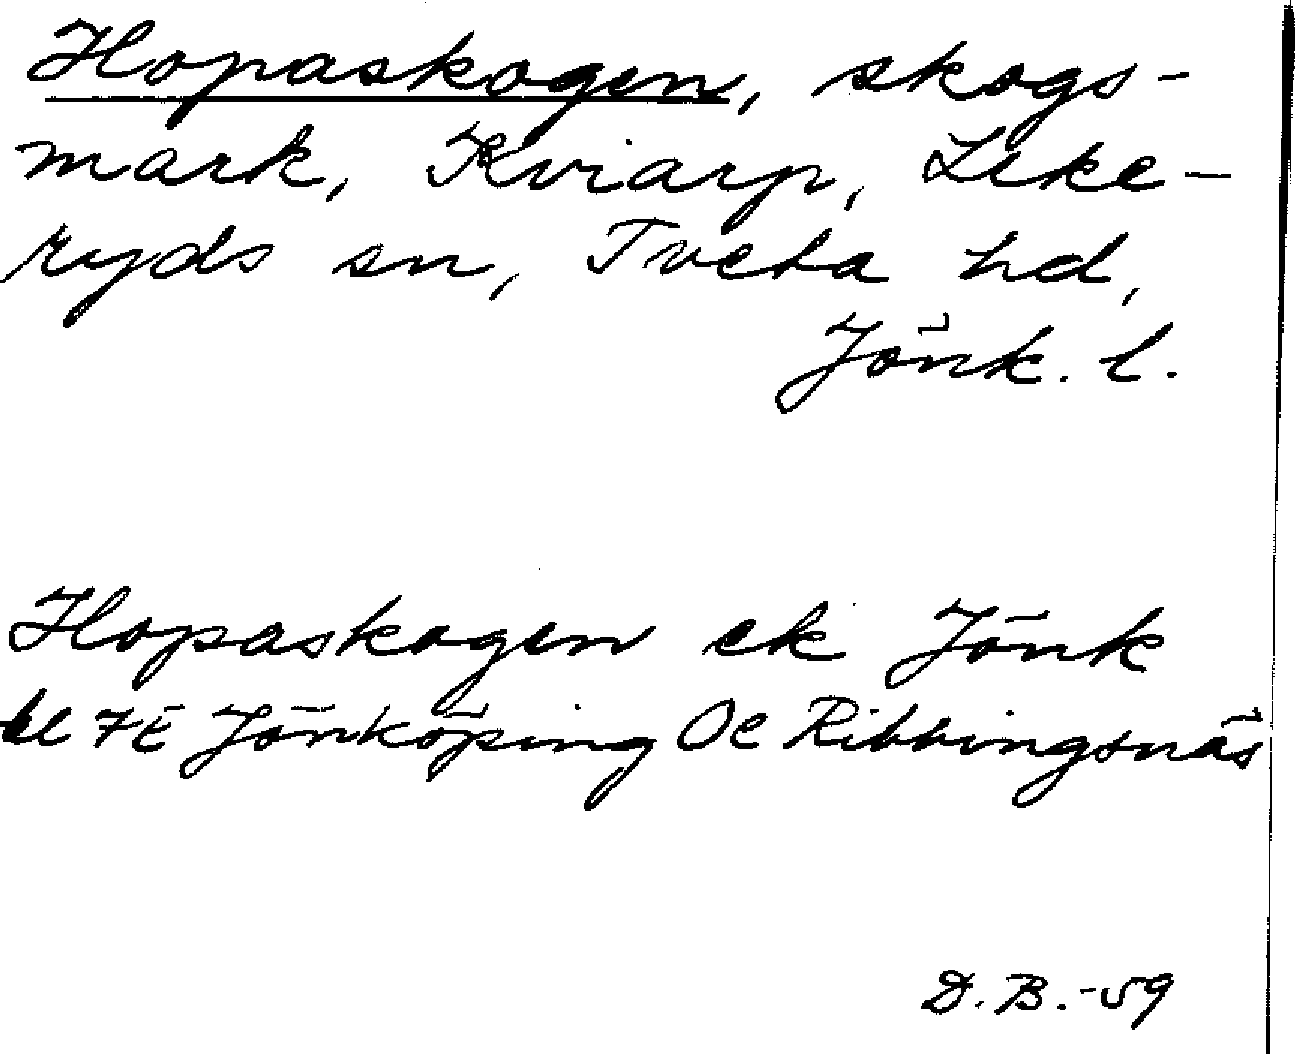 Hopaskogen, skogs-
mark, Kviarp, Leke-
ryds sn, Tveta hd,
Jönk. l.
Hopaskogen ek Jönk
bl 7E Jönköping Oc Ribbingsnäs
D. B. -59